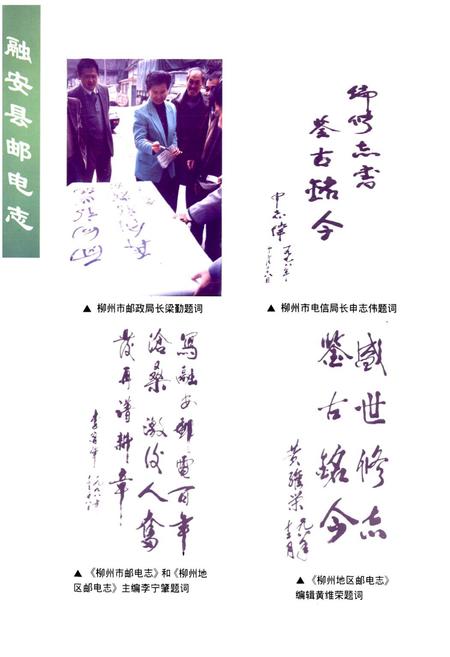 融安县邮电志
编修志书
鉴古铭今
申志伟
一九九八年
▲ 柳州市邮政局长梁勤题词
▲ 柳州市电信局长申志伟题词
写融安邮电百年
沧桑激后人奋
发再谱新章
李宁肇
盛世修志
鉴古铭今
黄维荣
▲ 《柳州市邮电志》和《柳州地
区邮电志》主编李宁肇题词
▲ 《柳州地区邮电志》
编辑黄维荣题词